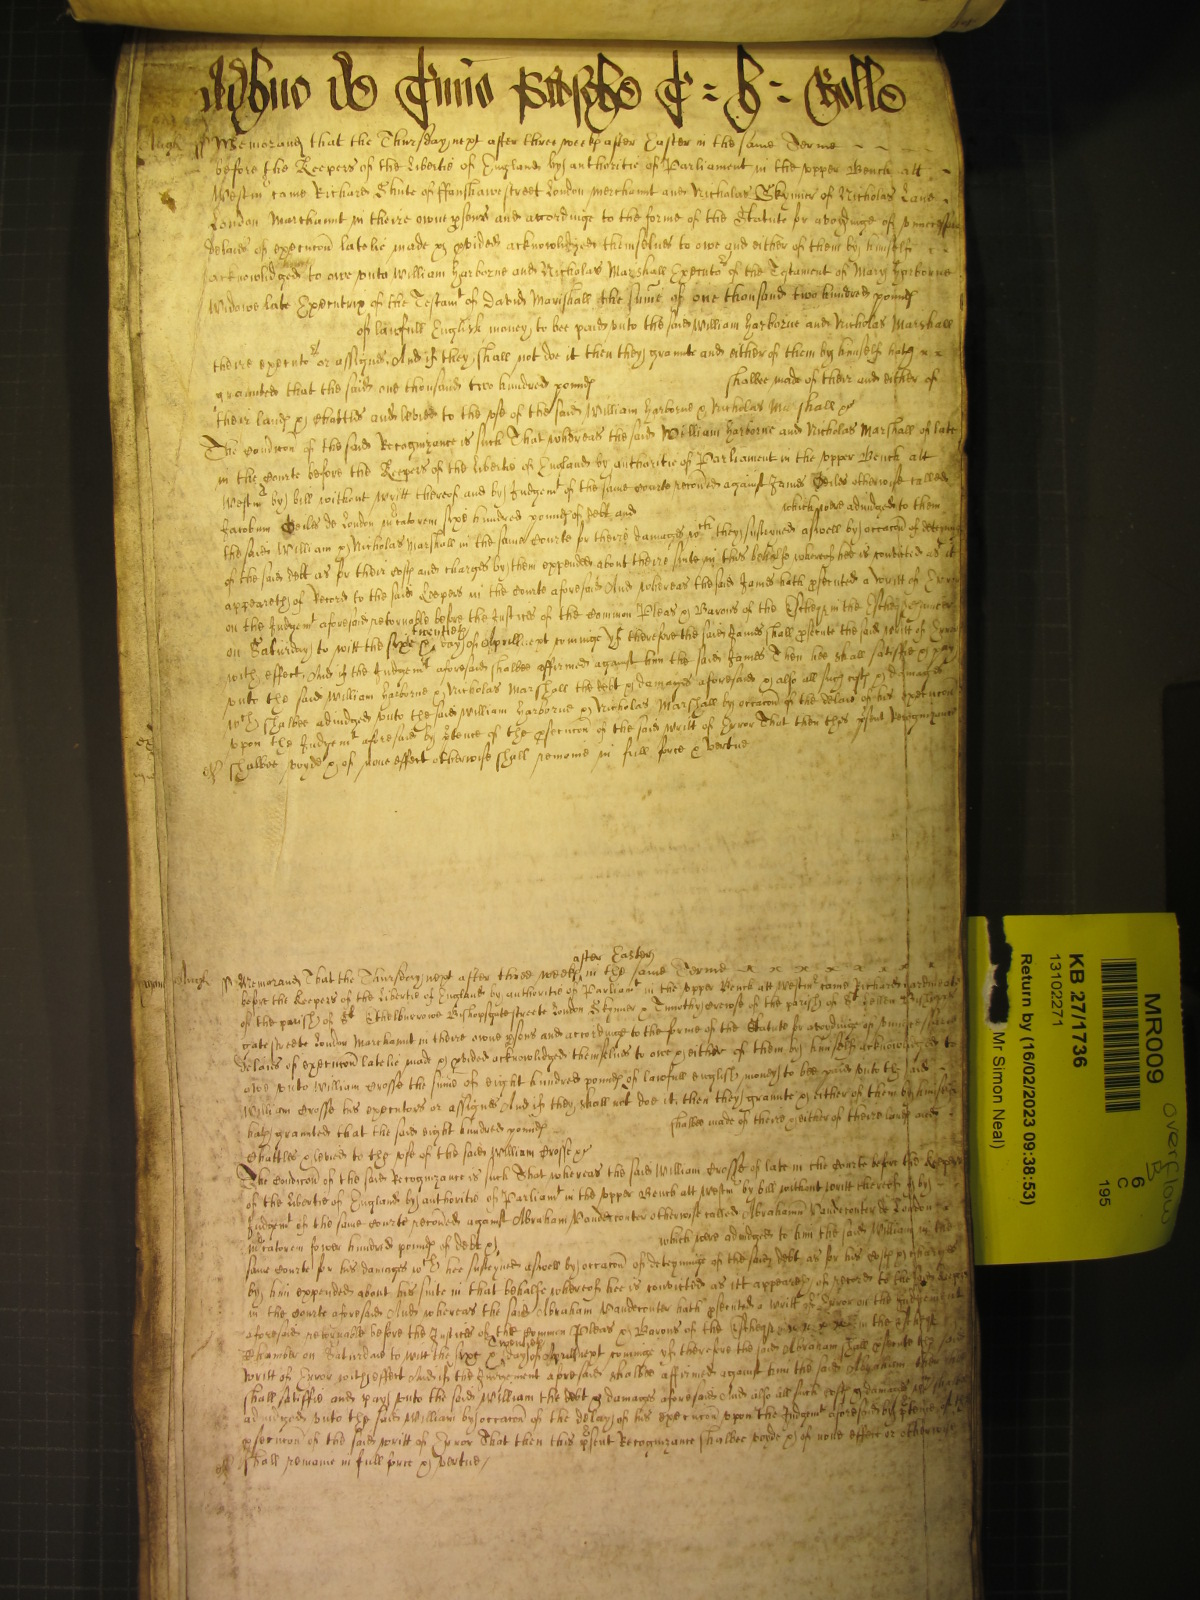 Adhuc de Termino Pasche
Memorand that the Thursday next after three weekes after Easter in the same Terme
before the Keepers of the libertie of England by authoritie of Parliament in the vpper Bench att
Westm came Richard Chute of ffanshawe street London merchannt and Nicholas Skynner of Nicholas Lane
London Marchannt in theire owne psons and accordinge to the forme of the Statute for avoydinge of vnnecessarie
delaies of execucon latelie made & pvided acknowlidged themselues to owe and either of them by himself
acknowlidged to owe vnto William Harborne and Nicholas Marshall Executors of the Testament of Mary Harborne
Widowe late Executrix of the Testamt of David Marshall the sume of one thousand two hundred pounds
of lawfull English money to bee paid vnto the said William Harborne and Nicholas Marshall
theire executors or assignes. And if they shall not doe it then they graunte and either of them by himself hath
graunted that the said one thousand two hundred pounds shalbee made of their and either of
their lands & Chattles and levied to the vse of the said William Harborne & Nicholas Marshall
The Condicon of the said Recognizance is such That whereas the said William Harborne and Nicholas Marshall of late
in the Courte before the Keepers of the libertie of England by authoritie of Parliament in the vpper Bench att
Westm by bill without writt thereof and by Judgemt of the same Courte recoued against James otherwise called
Jacobum de London mcatorem sixe hundred pounds of debt and which were adiudged to them
the said William & Nicholas Marshall in the same Courte for theire damages wch they susteined aswell by occacon of deteyninge
of the said debt as for their costs and charges by them expended about theire suite in this behalfe whereof hee is convicted as it
appeareth of Record to the said Keepers in the Courte aforesaid And whereas the said James hath psecuted a writt of Error
on the Judgemt aforesaid retornable before the Justices of the Common Pleas & Barons of the Exchequer in the Exchequer chamber
on Saturday to witt the sixe & twentieth day of Aprill next cominge yf therefore the said James shall psecute the said writt of Error
with effect, And if the Judgemt aforesaid shalbee affirmed against him the said James Then hee shall satisfie & pay
vnto the said William Harborne & Nicholas Marshall the debt & damages aforesaid & also all such costs & damages
wch shalbee adiudged vnto the said William Harborne & Nicholas Marshall by occacon of the delaie of his execucon
vpon the Judgemt aforesaid by ptence of the psecucon of the said writt of Error That then this psent Recognizance
shalbee voyde & of none effect otherwise shall remaine in full force & vertue
after Easter
Memorand That the Thursday next after three weekes in the same Terme
before the Keepers of the libertie of England by authoritie of Parliamt in the vpper Bench att Westm came Richard
of the parish of St Ethelburrowe Bishopsgate streete London Skynner & Timothy of the parish of St Hellen Bishops
gate streete London Marchannt in theire owne psons and accordinge to the forme of the Statute for avoydinge of vnnecessarie
delaies of execucon latelie made & pvided acknowlidged themselues to owe & either of them by himself acknowlidged to
owe vnto William Crosse the sume of eight hundred pounds of lawfull english money to bee paid vnto the said
William Crosse his executors or assignes And if they shall not doe it, then they graunte & either of them by himself
hath graunted that the said eight hundred pounds shalbee made of theire & either of theire lands and
Chattles & levied to the vse of the said William Crosse
The Condicon of the said Recognizance is such That whereas the said William Crosse of late in the Courte before the Keepers
of the libertie of England by authoritie of Parliamt in the vpper Bench att Westm by bill without writt thereof & by
Judgemt of the same Courte recoued against Abraham Vandecouter otherwise called Abrahamum Vandecouter de London
mcatorem fower hundred pounds of debt & which were adiudged to him the said William in the
same Courte for his damages wch hee susteyned aswell by occacon of deteyninge of the said debt as for his costs & charges
by him expended about his suite in that behalfe whereof hee is convicted as itt appeareth of record to the said Keepers
in the Courte aforesaid And whereas the said Abraham Vandecouter hath psecuted a writt of Error on the Judgement
aforesaid retornable before the Justices of the Common Pleas & Barons of the Exchequer in the Exchequer
Chamber on Saturdaie to witt the sixe & Twentieth day of Aprill next cominge yf therefore the said Abraham shall psecute the said
writt of Error with effect And if the Judgement aforesaid shalbee affirmed against him the said Abraham then hee
shall satisfie and pay vnto the said William the debt & damages aforesaid And also all such costs & damages wch shalbee
adiudged vnto the said William by occacon of the delay of his execucon vpon the Judgemt aforesaid by ptence of the
psecucon of the said writt of Error That then this psent Recognizance shalbee voide & of none effect or otherwise
shall remaine in full force & vertue
MR009
overflow
B
6
C
195
KB 27/1736
13102271
Return by (16/02/2023 09:38:53)
Mr Simon Neal)